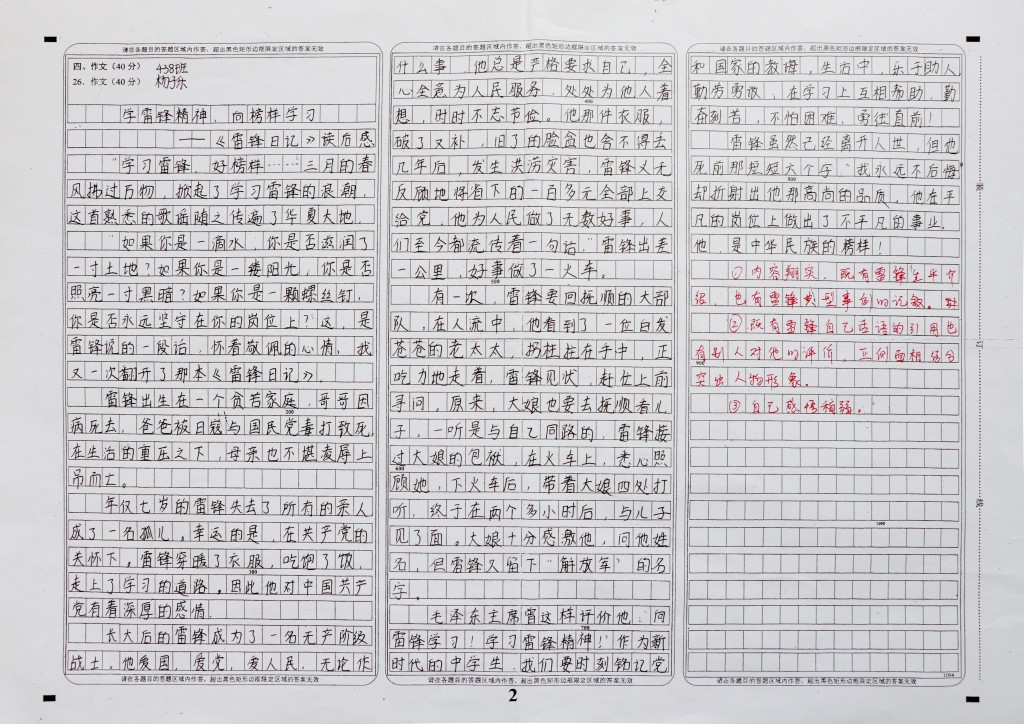 请在各题目的答题区域内作答，超出黑色矩形边框限定区域的答案无效
四、作文（40分）
438班
26．作文（40分）
学雷锋精神，向榜样学习
——《雷锋日记》读后感
"学习雷锋，好榜样……三月的春
风拂过万物，掀起了学习雷锋的浪朝，
这首熟悉的歌谣随之传遍了华夏大地。
"如果你是一滴水，你是否滋润了
一寸土地？如果你是一缕阳光，你是否
照亮一寸黑暗？如果你是一颗螺丝钉，
你是否永远坚守在你的岗位上？这，是
雷锋说的一段话，怀着敬佩的心情，我
又一次翻开了那本《雷锋日记》。
雷锋出生在一个贫苦家庭，哥哥因
病死去，爸爸被日寇与国民党毒打致死，
200
在生活的重压之下，母亲也不堪凌辱上
吊而亡。
年仅七岁的雷锋失去了所有的亲人
成了一名孤儿。幸运的是，在共产党的
关怀下。雷锋穿暖了衣服，吃饱了饭，
300
走上了学习的道路。因此他对中国共产
党有着深厚的感情
长大后的雷锋成为了一名无产阶级
战士。他爱国，爱党，爱人民，无论作
请在各题目的答题区域内作答，超出黑色矩形边框限定区域的答案无效
请在各题目的答题区域内作答，超出黑色矩形边框限定区域的答案无效
什么事，他总是严格要求自己，全
心全意为人民服务，处处为他人着
400
想，时时不忘节俭。他那件衣服，
破了又补，旧了的脸盆也舍不得去
几年后，发生洪涝灾害，雷锋义无
反顾地将省下的一百多元全部上交
给党。他为人民做了无数好事，人
们至今都流传着一句话，"雷锋出差
一公里，好事做了一火车。
500
有一次，雷锋要回抚顺的大部
队，在人流中，他看到了一位白发
苍苍的老太太，拐杖拄在手中，正
吃力地走着，雷锋见状，赶忙上前
寻问，原来，大娘也要去抚顺看儿
子。一听是与自己同路的，雷锋接
过大娘的包袱，在火车上，悉心照
600
顾她，下火车后，带着大娘四处打
听，终于在两个多小时后，与儿子
见了面。大娘十分感激他，问他姓
名，但雷锋又留下"解放军"的名
字。
毛泽东主席曾这样评价他：向
700
雷锋学习！学习雷锋精神！"作为新
时代的中学生，我们要时刻铭记党
请在各题目的答题区域内作答，超出黑色矩形边框限定区域的答案无效
请在各题目的答题区域内作答，超出黑色矩形边框限定区域的答案无效
和国家的教诲，生活中，乐于助人，
勤劳勇敢，在学习上互相帮助，勤
奋刻苦，不怕困难，勇往直前！
雷锋虽然已经离开人世，但他
死前那短短大个字"我永远不后悔
800
却折射出他那高尚的品质，他在平
凡的岗位上做出了不平凡的事业。
他，是中华民族的榜样！
①内容翔实，既有雷锋生平介
绍，也有雷锋典型事例的记叙。
②既有雷锋自己话语的引用也
有别人对他的评价，正侧面相结合
900
突出人物形象。
③自己感悟稍弱。
1000
1094
请在各题目的答题区域内作答，超出黑色矩形边框限定区域的答案无效
装
订
线
2